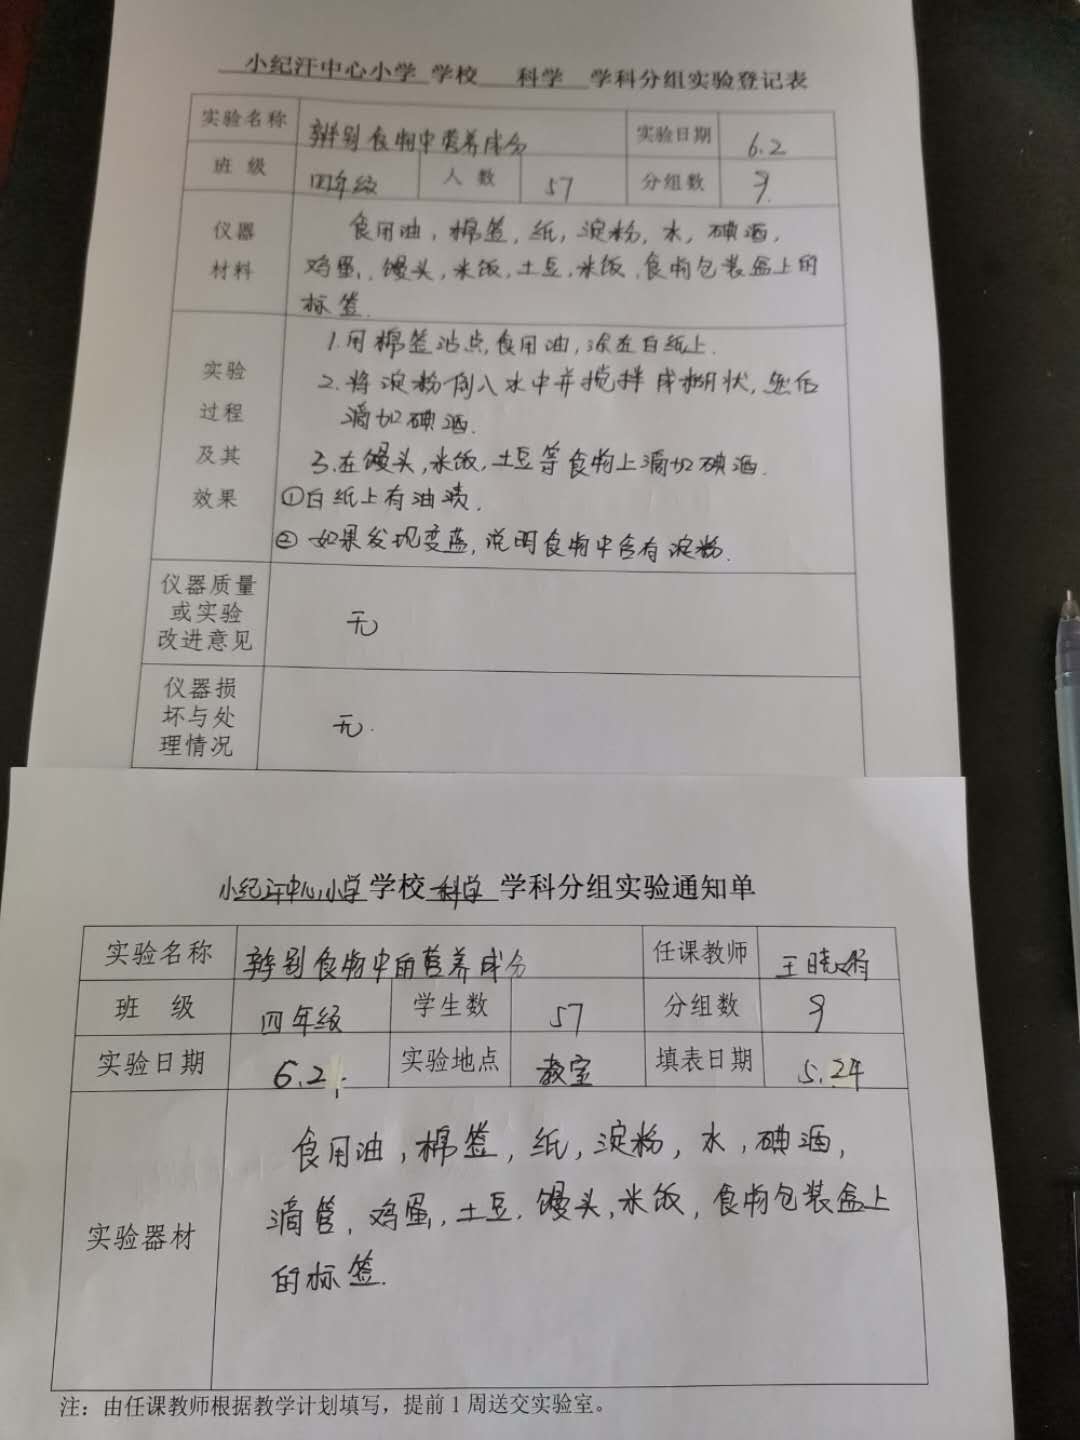 小纪汗中心小学 学校 科学 学科分组实验登记表
实验名称 辨别食物中营养成分 实验日期 6.2
班级 四年级 人数 57 分组数 9
仪器材料 食用油,棉签,纸,淀粉,水,碘酒,
鸡蛋,馒头,米饭,土豆,米饭,食物包装盒上的
标签.
实验过程及其效果 1.用棉签沾点食用油,涂在白纸上.
2.将淀粉倒入水中并搅拌成糊状,然后
滴加碘酒.
3.在馒头,米饭,土豆等食物上滴加碘酒.
①白纸上有油渍.
②如果发现变蓝,说明食物中含有淀粉.
仪器质量或实验改进意见 无
仪器损坏与处理情况 无.
小纪汗中心小学 学校 科学 学科分组实验通知单
实验名称 辨别食物中的营养成分 任课教师 王晓娟
班级 四年级 学生数 57 分组数 9
实验日期 6.2 实验地点 教室 填表日期 5.24
实验器材 食用油,棉签,纸,淀粉,水,碘酒,
滴管,鸡蛋,土豆,馒头,米饭,食物包装盒上
的标签.
注:由任课教师根据教学计划填写,提前1周送交实验室。